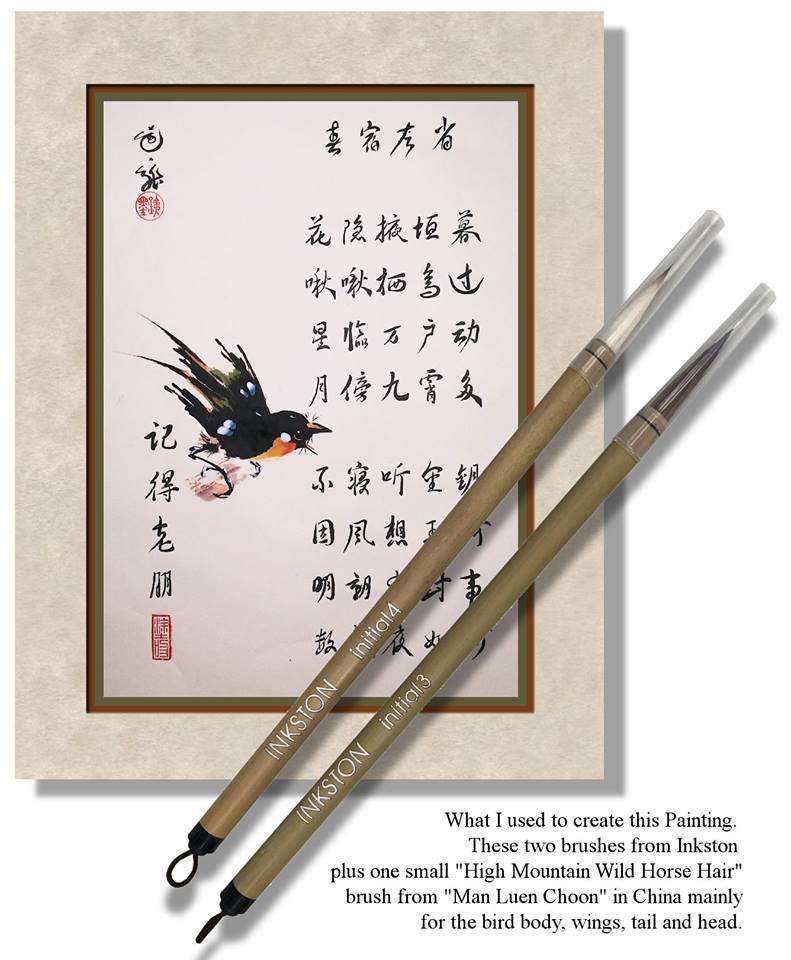 春宿左省
花隐掖垣暮
啾啾栖鸟过
星临万户动
月傍九霄多
不寝听金钥
因风想
明朝封事
数夜如
记得老朋
INKSTON initial4
INKSTON initial3
What I used to create this Painting.
These two brushes from Inkston
plus one small "High Mountain Wild Horse Hair"
brush from "Man Luen Choon" in China mainly
for the bird body, wings, tail and head.